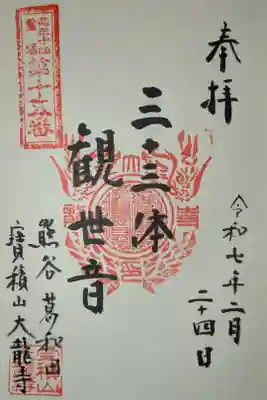 奉拝
令和七年二月
二十四日
三十三体
観世音
熊谷葛和田
寳積山大龍寺